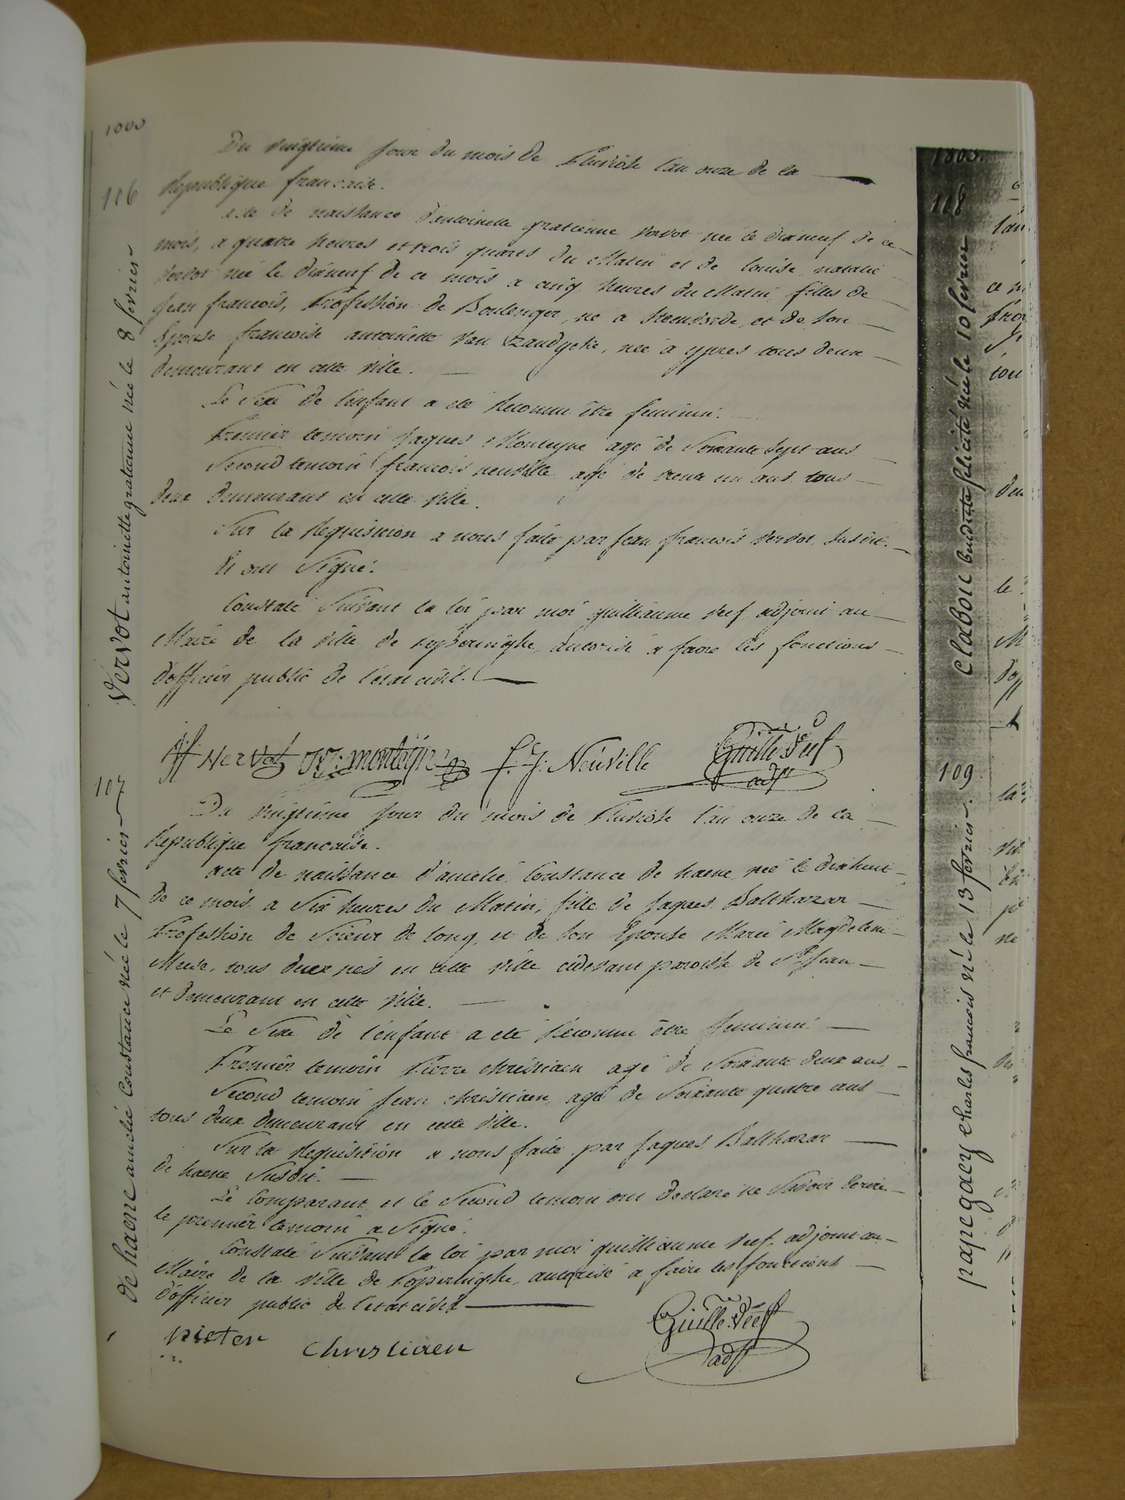 1803
116
Vervot antoinette gratienne née le 8 fevrier
Du vingtieme jour du mois de Pluviose l'an onze de la
Republique francaise.
acte de naissance d'antoinette gratienne vervot née le dixneuf de ce
mois, a quatre heures et trois quarts du Matin et de louise natalie
vervot née le dixneuf de ce mois a cinq heures du Matin filles de
Jean francois, Profession de Boulenger, né a Steenvorde, et de son
Epouse francoise antoinette Van Zandycke, née a ypres tous deux
demeurant en cette ville.
Le Sexe de l'enfant a eté Reconnu être feminin.
Premier temoin Jaques Montayne agé de Soixante Sept ans
Second temoin francois neuville agé de trente un ans tous
deux demeurant en cette ville.
Sur la Requisition a nous faite par Jean francois Vervot Susdit.
Et ont Signé.
Constaté Suivant la loi par moi guilliaume veef adjoint au
Maire de la ville de Poperinghe, autorisé a faire les fonctions
d'officier public de l'etat civil.
J f Vervot J: montaÿne f. J. Neuville Guille. Veef
adjt
107
de haene amelié Constance née le 7 fevrier
Du vingtieme jour du mois de Pluviose l'an onze de la
Republique francaise.
acte de naissance d'amelié Constance de haene née le dixhuit
de ce mois a Six heures du Matin, fille de Jaques Balthazar
Profession de Scieur de long, et de son Epouse Marie Magdeleine
, tous deux nés en cette ville cidevant paroisse de St Jean
et demeurant en cette ville.
Le Sexe de l'enfant a eté Reconnu être feminin
Premier temoin Pierre Christiaen agé de Soixante deux ans
Second temoin Jean Christiaen, agé de Soixante quatre ans
tous deux demeurant en cette ville.
Sur la Requisition a nous faite par Jaques Balthazar
de haene Susdit.
Le Comparant et le Second temoin ont declaré ne Savoir Ecrire
le premier temoin a Signé.
Constaté Suivant la loi par moi guilliaume veef adjoint au
Maire de la ville de Poperinghe, autorisé a faire les fonctions
d'officier public de l'etat civil
pieter Christiaen Guille. Veef
adjt
1803
118
Clabou benedicte felicité née le 10 fevrier
109
papegaey Charles francois né le 13 fevrier